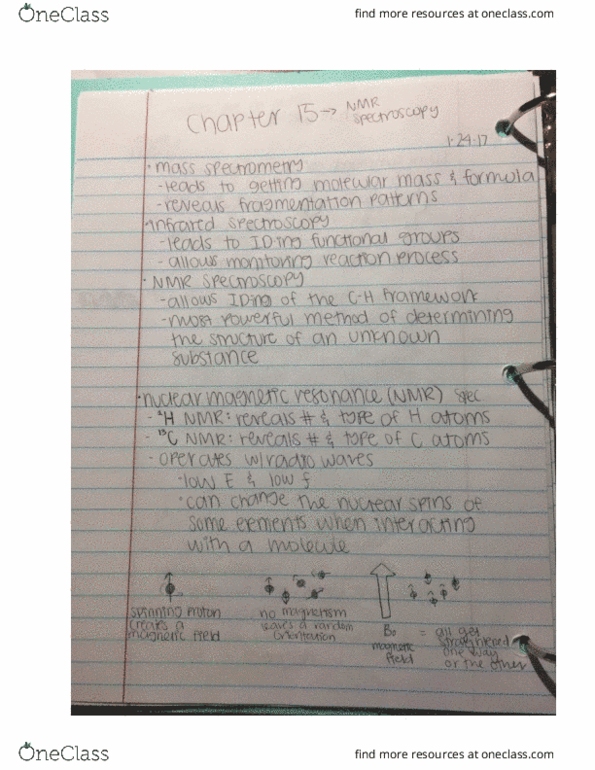 OneClass
find more resources at oneclass.com
Chapter 15 → NMR
spectroscopy
1·24·17
· mass spectrometry
- leads to getting molecular mass & formula
- reveals fragmentation patterns
· infrared spectroscopy
- leads to IDing functional groups
- allows monitoring reaction process
· NMR spectroscopy
- allows IDing of the C-H framework
- most powerful method of determining
the structure of an unknown
substance
· nuclear magnetic resonance (NMR) spec
- ¹H NMR: reveals # & type of H atoms
- ¹³C NMR: reveals # & type of C atoms
- operates w/radio waves
· low E & low f
· can change the nuclear spins of
some elements when interacting
with a molecule
spinning proton
creates a
magnetic field
no magnetism
leaves a random
orientation
B₀
magnetic
field
= all get
straightened
one way
or the other
OneClass
find more resources at oneclass.com